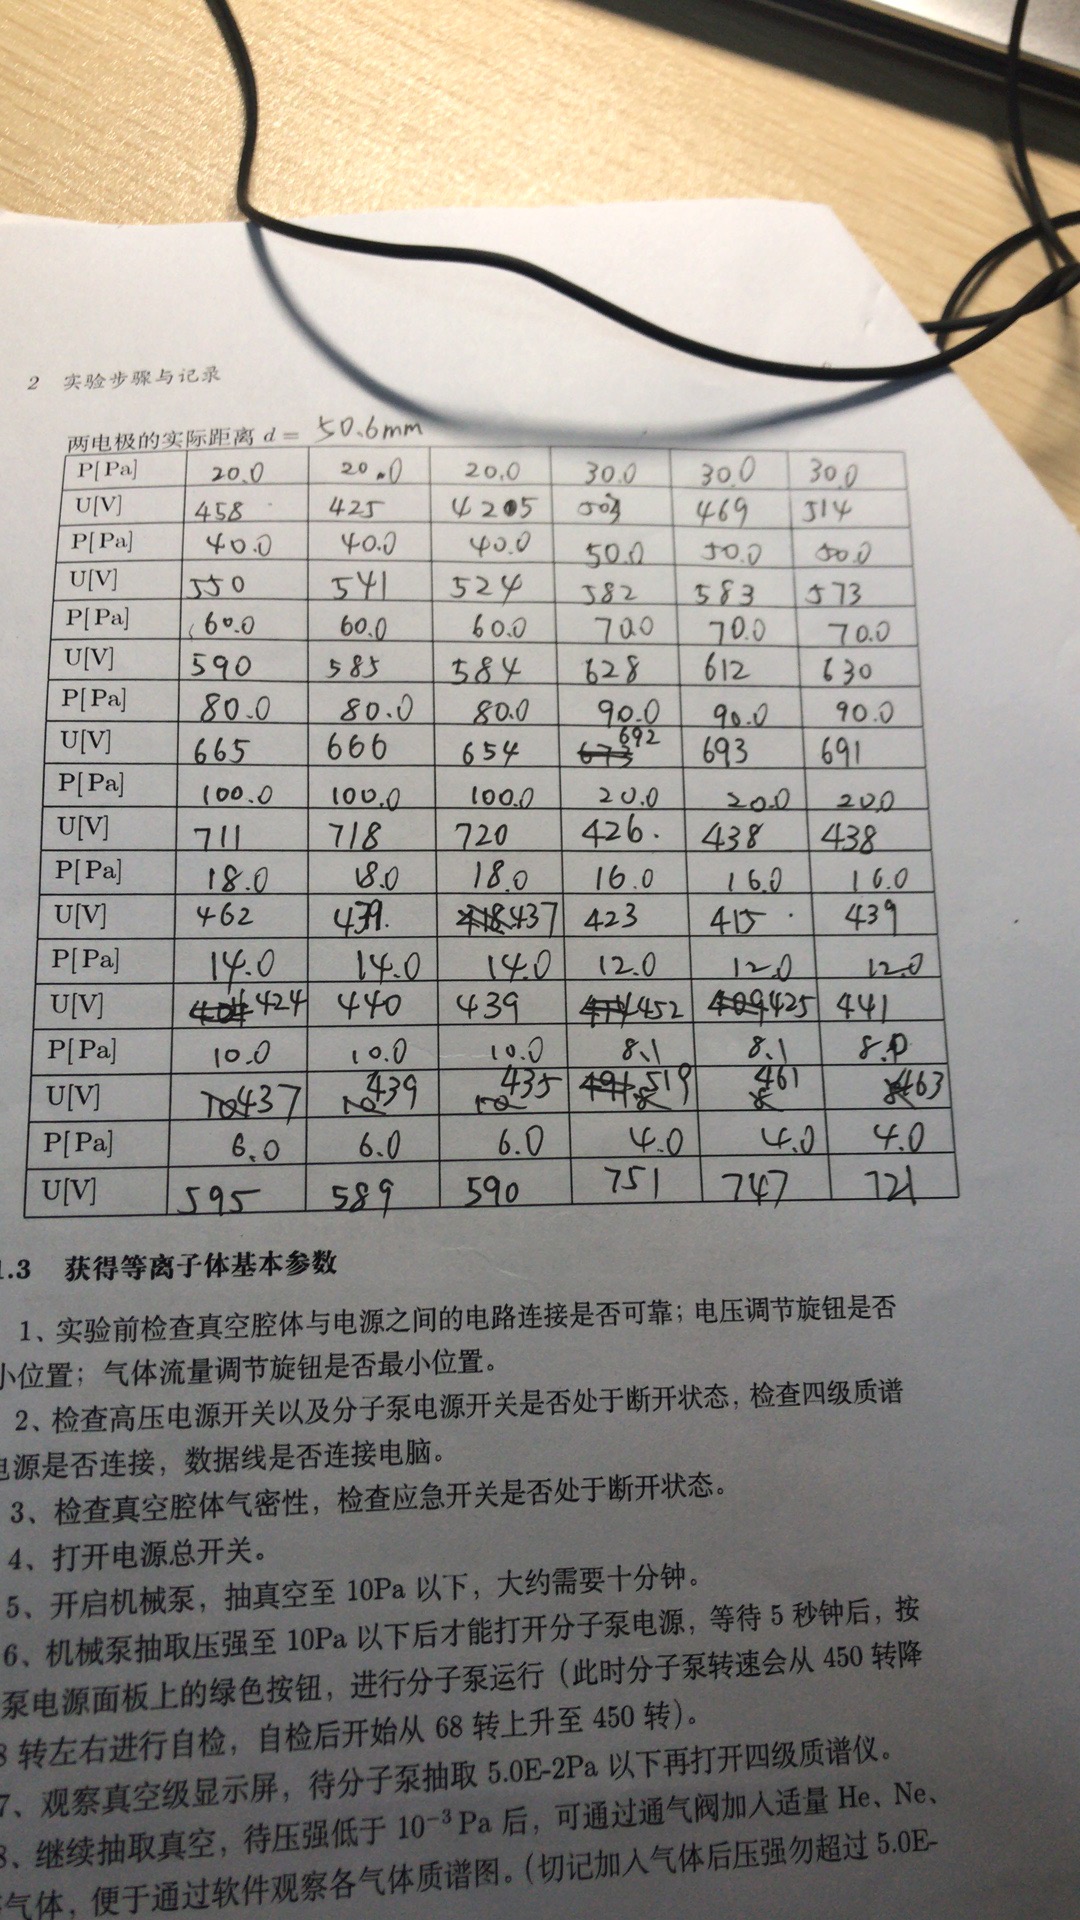 2 实验步骤与记录
两电极的实际距离 d = 50.6mm
P[Pa] 20.0 20.0 20.0 30.0 30.0 30.0
U[V] 458 425 425 503 469 514
P[Pa] 40.0 40.0 40.0 50.0 50.0 50.0
U[V] 550 541 524 582 583 573
P[Pa] 60.0 60.0 60.0 70.0 70.0 70.0
U[V] 590 585 584 628 612 630
P[Pa] 80.0 80.0 80.0 90.0 90.0 90.0
U[V] 665 666 654 673 692 693 691
P[Pa] 100.0 100.0 100.0 20.0 20.0 20.0
U[V] 711 718 720 426. 438 438
P[Pa] 18.0 18.0 18.0 16.0 16.0 16.0
U[V] 462 439. 437 423 415 439
P[Pa] 14.0 14.0 14.0 12.0 12.0 12.0
U[V] 424 440 439 452 425 441
P[Pa] 10.0 10.0 10.0 8.1 8.1 8.0
U[V] 437 439 435 519 461 463
P[Pa] 6.0 6.0 6.0 4.0 4.0 4.0
U[V] 595 589 590 751 747 721
1.3 获得等离子体基本参数
1、实验前检查真空腔体与电源之间的电路连接是否可靠；电压调节旋钮是否
小位置；气体流量调节旋钮是否最小位置。
2、检查高压电源开关以及分子泵电源开关是否处于断开状态，检查四级质谱
电源是否连接，数据线是否连接电脑。
3、检查真空腔体气密性，检查应急开关是否处于断开状态。
4、打开电源总开关。
5、开启机械泵，抽真空至 10Pa 以下，大约需要十分钟。
6、机械泵抽取压强至 10Pa 以下后才能打开分子泵电源，等待 5 秒钟后，按
泵电源面板上的绿色按钮，进行分子泵运行（此时分子泵转速会从 450 转降
8 转左右进行自检，自检后开始从 68 转上升至 450 转）。
7、观察真空级显示屏，待分子泵抽取 5.0E-2Pa 以下再打开四级质谱仪。
8、继续抽取真空，待压强低于 10⁻³ Pa 后，可通过通气阀加入适量 He、Ne、
气体，便于通过软件观察各气体质谱图。（切记加入气体后压强勿超过 5.0E-